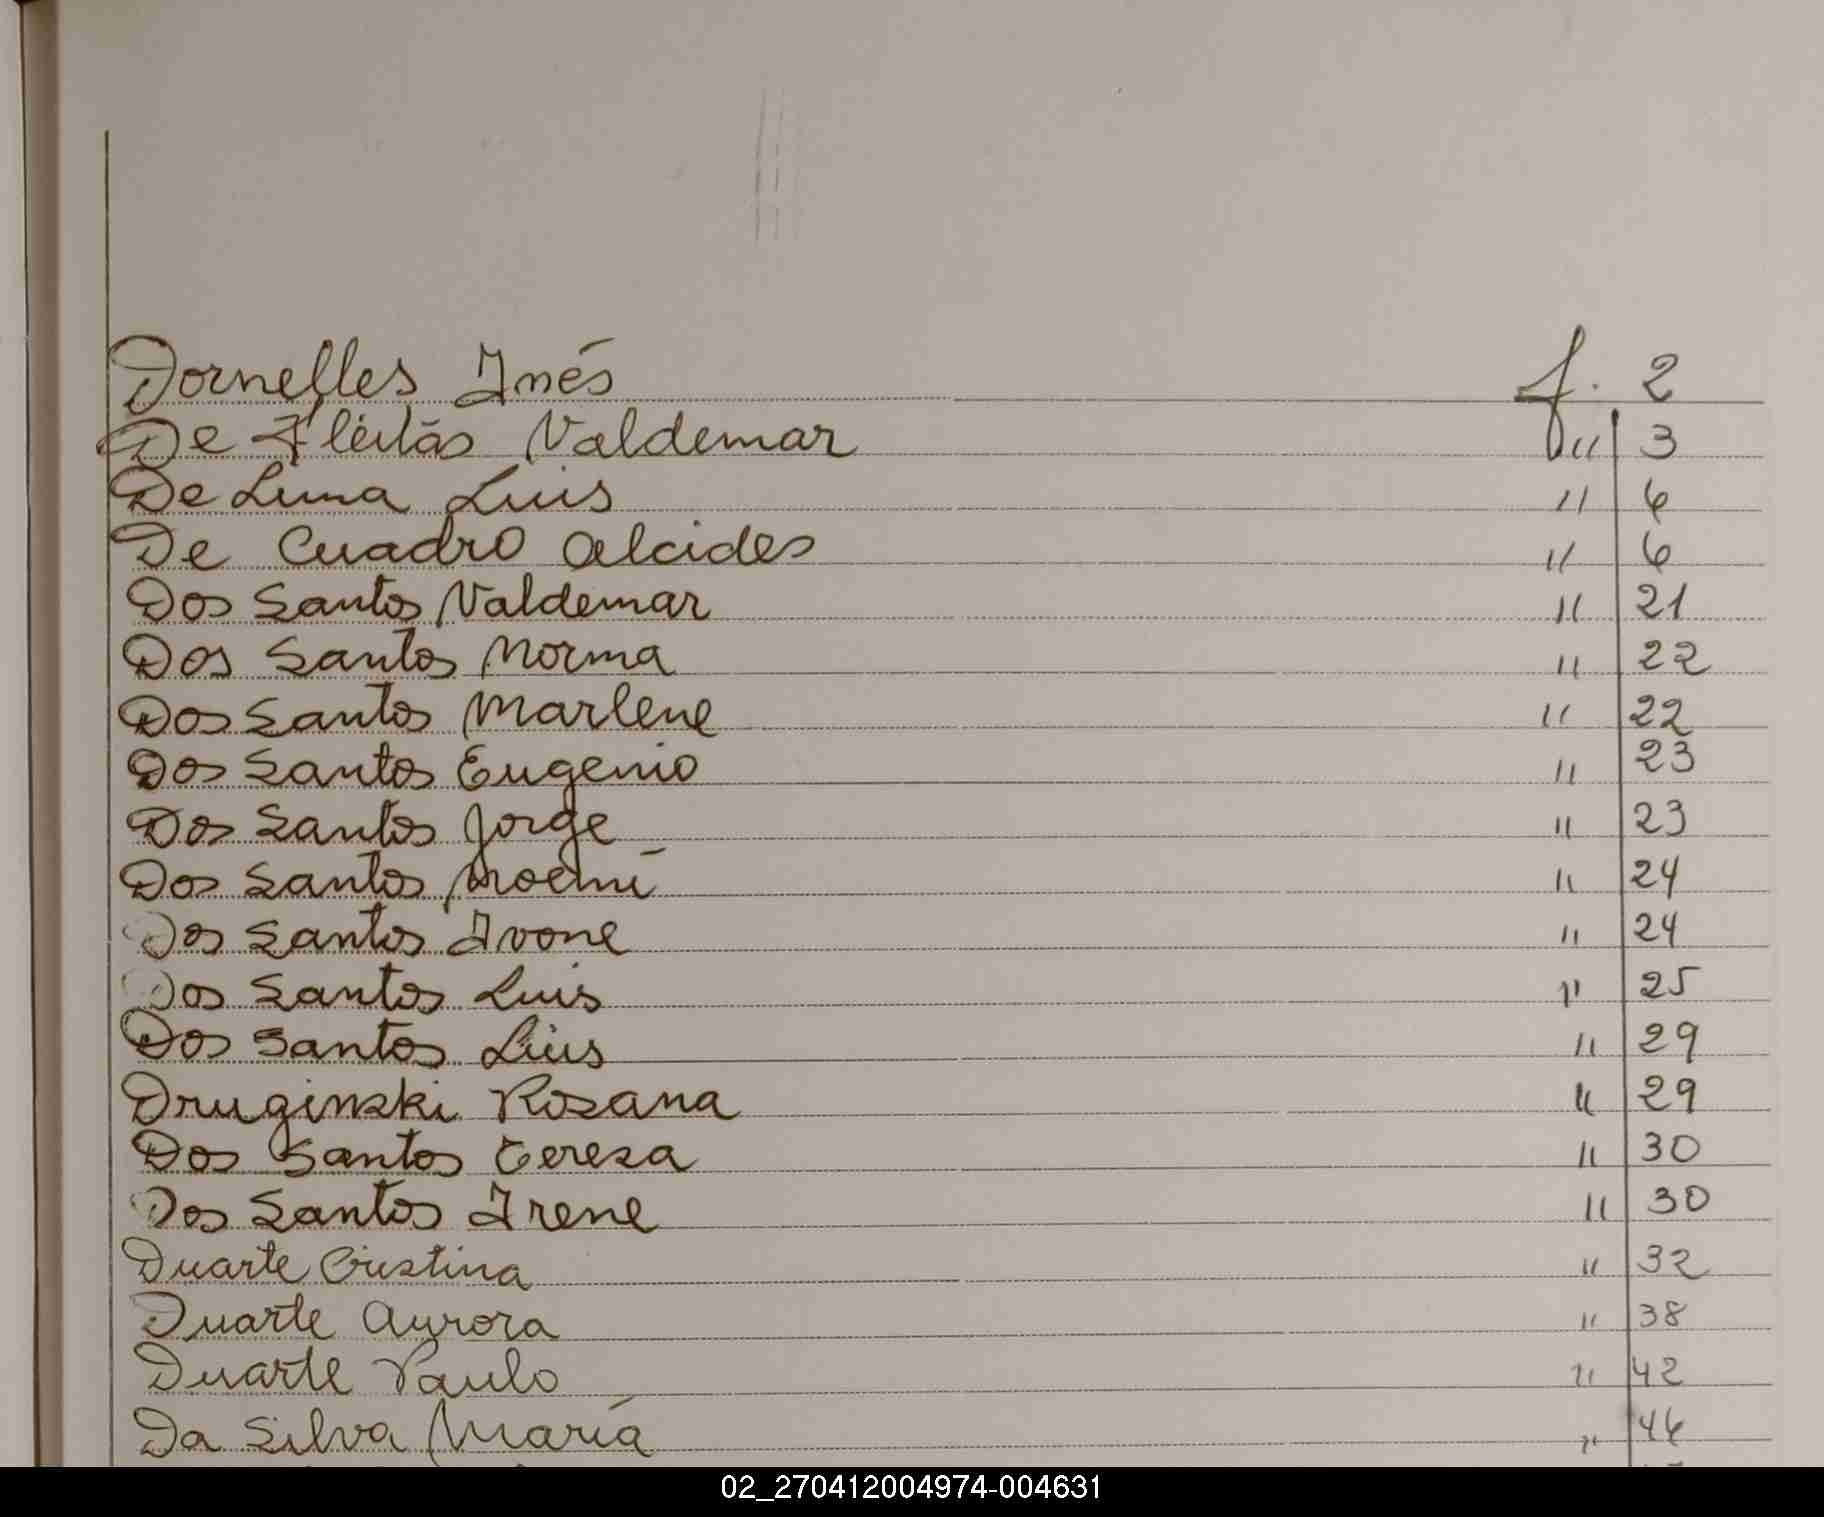 Dornelles Inés f. 2
De Fleitas Valdemar " 3
De Luna Luis " 6
De Cuadro Alcides " 6
Dos Santos Valdemar " 21
Dos Santos Norma " 22
Dos Santos Marlene " 22
Dos Santos Eugenio " 23
Dos Santos Jorge " 23
Dos Santos Noemí " 24
Dos Santos Ivone " 24
Dos Santos Luis " 25
Dos Santos Luis " 29
Druginski Rosana " 29
Dos Santos Teresa " 30
Dos Santos Irene " 30
Duarte Cristina " 32
Duarte Aurora " 38
Duarte Paulo " 42
Da Silva María " 46
02_270412004974-004631